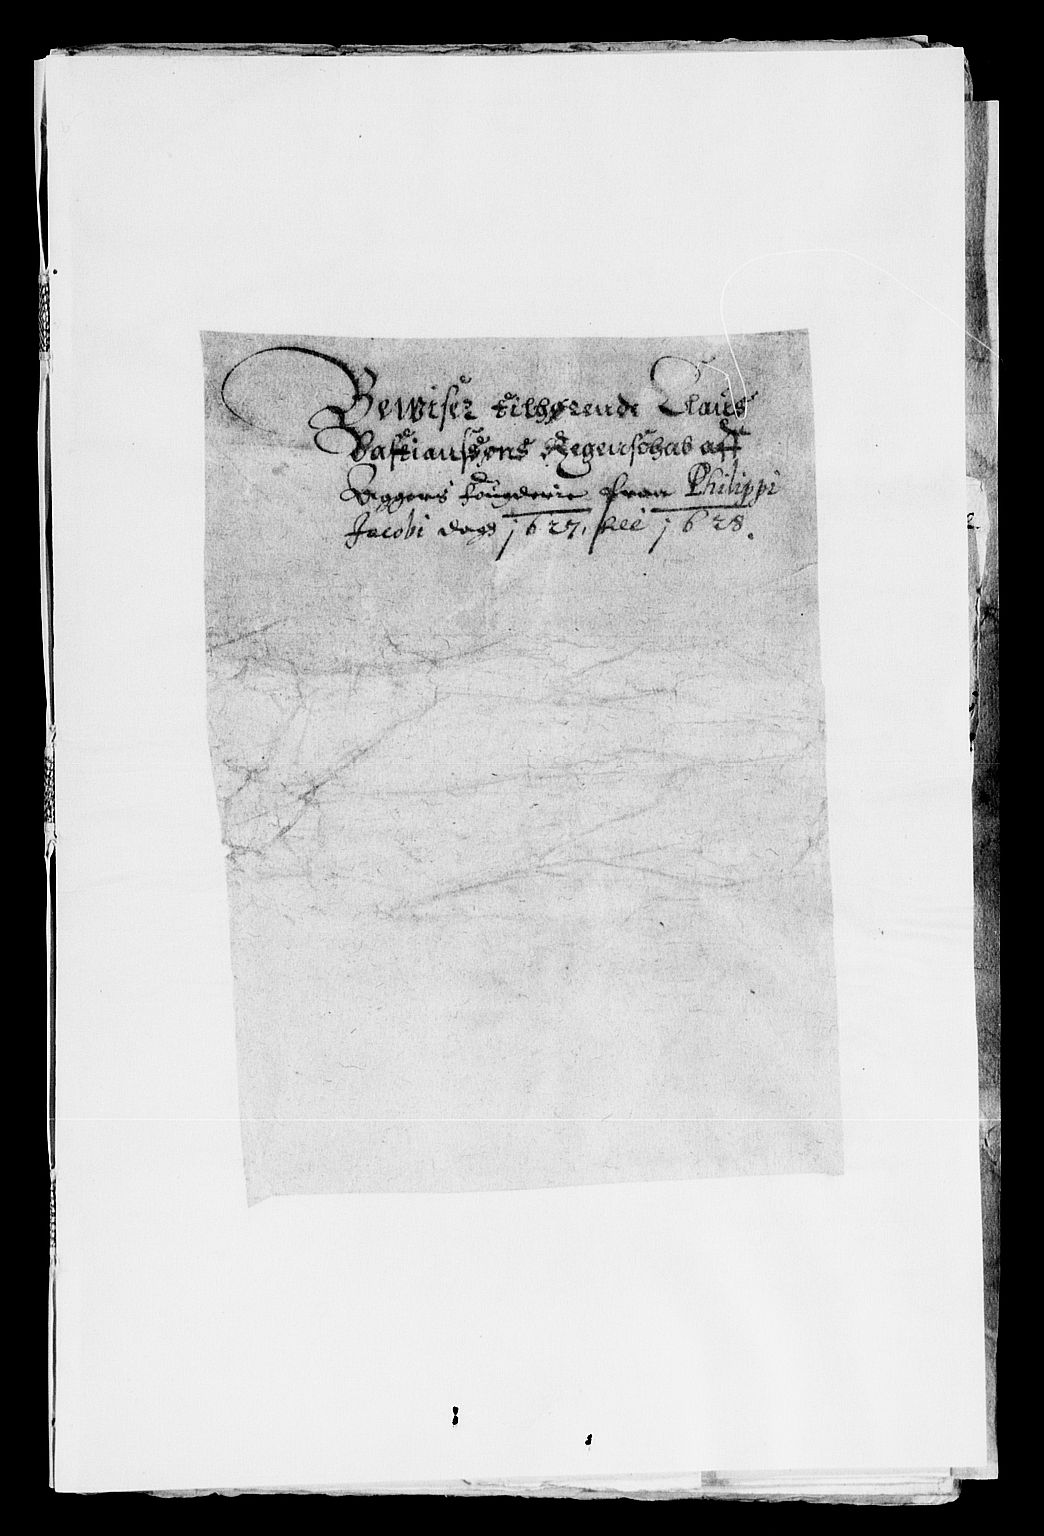 Bewiser tilhørende Claus
Bastianssøns Regenschab aff
Aggers fougderie fraa Philippi
Jacobi dag 1627, till 1628.